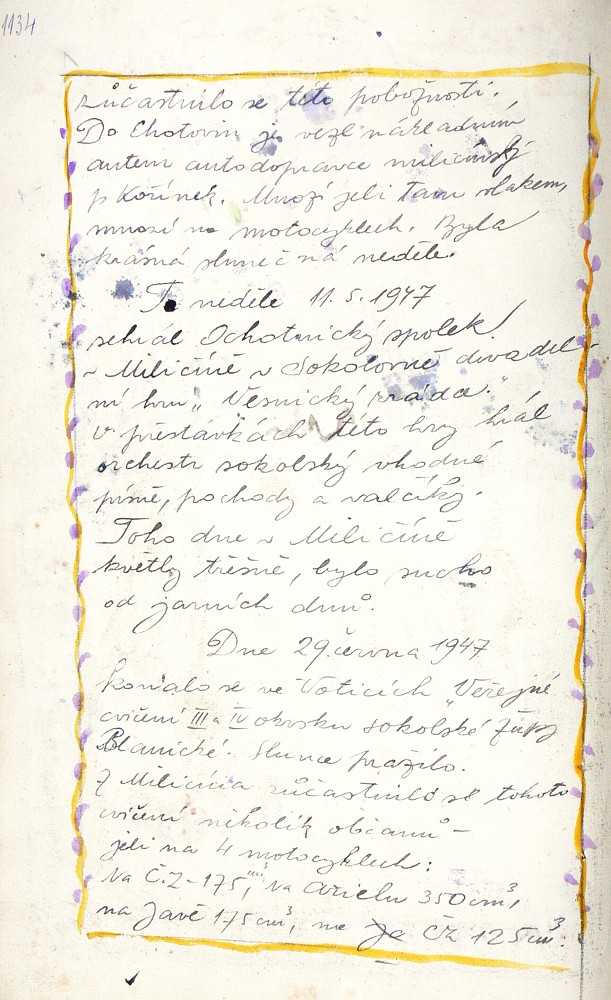 1134
zůčastnilo se této pobožnosti.
Do Chotovin je vezl nákladním
autem autodopravce miličínský
p. Kořínek. Mnozí jeli tam vlakem,
mnozí na motocyklech. Byla
krásná slunečná neděle.
Té neděle 11. 5. 1947
sehrál Ochotnický spolek
v Miličíně v Sokolovně divadel-
ní hru „Vesnický ráda."
V přestávkách této hry hrál
orchestr sokolský vhodné
písně, pochody a valčíky.
Toho dne v Miličíně
květly třešně, bylo sucho
od jarních dnů.
Dne 29. června 1947
konalo se ve Voticích „Veřejné
cvičení III a IV okrsku sokolské župy
Blanické. Slunce pražilo.
Z Miličína zůčastnilo se tohoto
cvičení několik občanů -
jeli na 4 motocyklech:
Na Č.Z - 175, na Arielu 350 cm³,
na Javě 175 cm³, na ČZ 125 cm³.